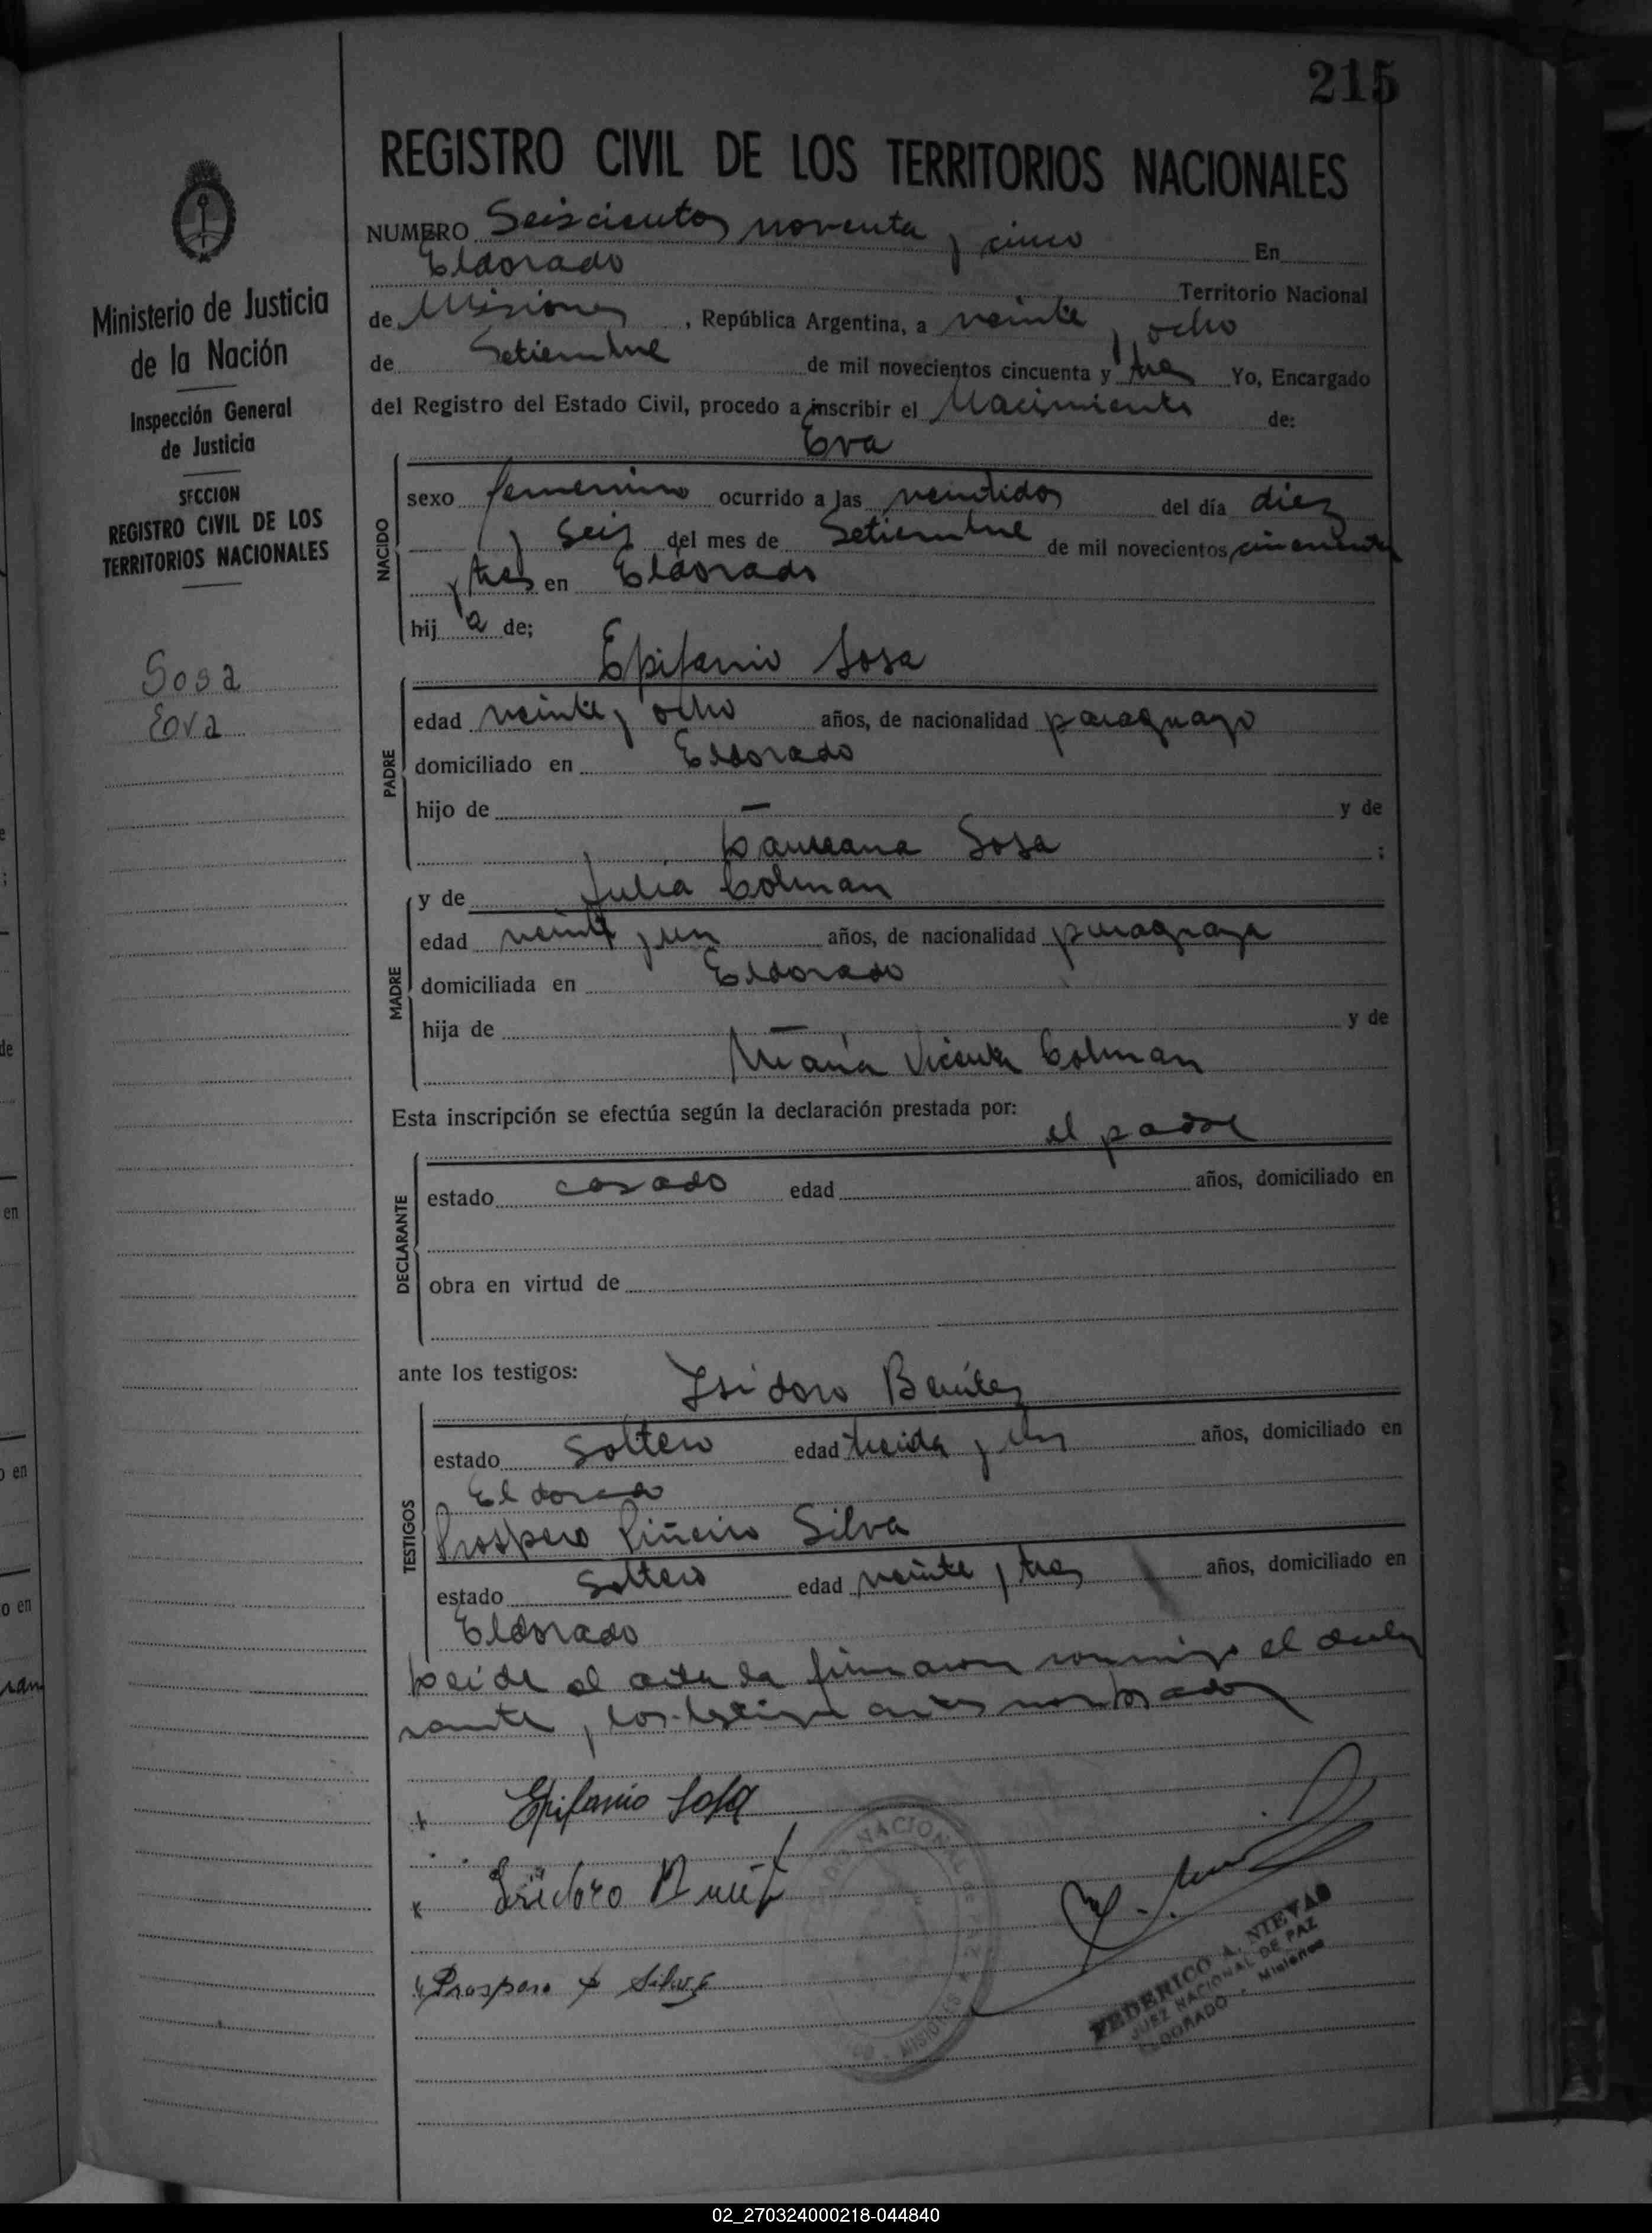 215
REGISTRO CIVIL DE LOS TERRITORIOS NACIONALES
Ministerio de Justicia
de la Nación
Inspección General
de Justicia
SECCION
REGISTRO CIVIL DE LOS
TERRITORIOS NACIONALES
Sosa
Eva
NUMERO Seiscientos noventa y cinco En
Eldorado
Territorio Nacional
de Misiones, República Argentina, a veinte y ocho
de Setiembre de mil novecientos cincuenta y tres Yo, Encargado
del Registro del Estado Civil, procedo a inscribir el Nacimiento de:
Eva
NACIDO
sexo femenino ocurrido a las veintidos del día diez
y seis del mes de Setiembre de mil novecientos cincuenta
y tres en Eldorado
hij a de;
Epifanio Sosa
PADRE
edad veinte y ocho años, de nacionalidad paraguayo
domiciliado en Eldorado
hijo de — y de
Sosa ;
y de Julia Colman
MADRE
edad veinte y un años, de nacionalidad paraguaya
domiciliada en Eldorado
hija de — y de
María Vicenta Colman
Esta inscripción se efectúa según la declaración prestada por:
el padre
DECLARANTE
estado casado edad años, domiciliado en
obra en virtud de
ante los testigos:
Isidoro Benítez
TESTIGOS
estado soltero edad treinta y un años, domiciliado en
Eldorado
Prospero Piñeiro Silva
estado soltero edad veinte y tres años, domiciliado en
Eldorado
Leida el acta la firmaron conmigo el decla
rante y los testigos antes nombrados
Epifanio Sosa
Isidoro Benítez
Prospero P Silva
FEDERICO A. NIEVAS
JUEZ NACIONAL DE PAZ
ELDORADO - Misiones
02_270324000218-044840